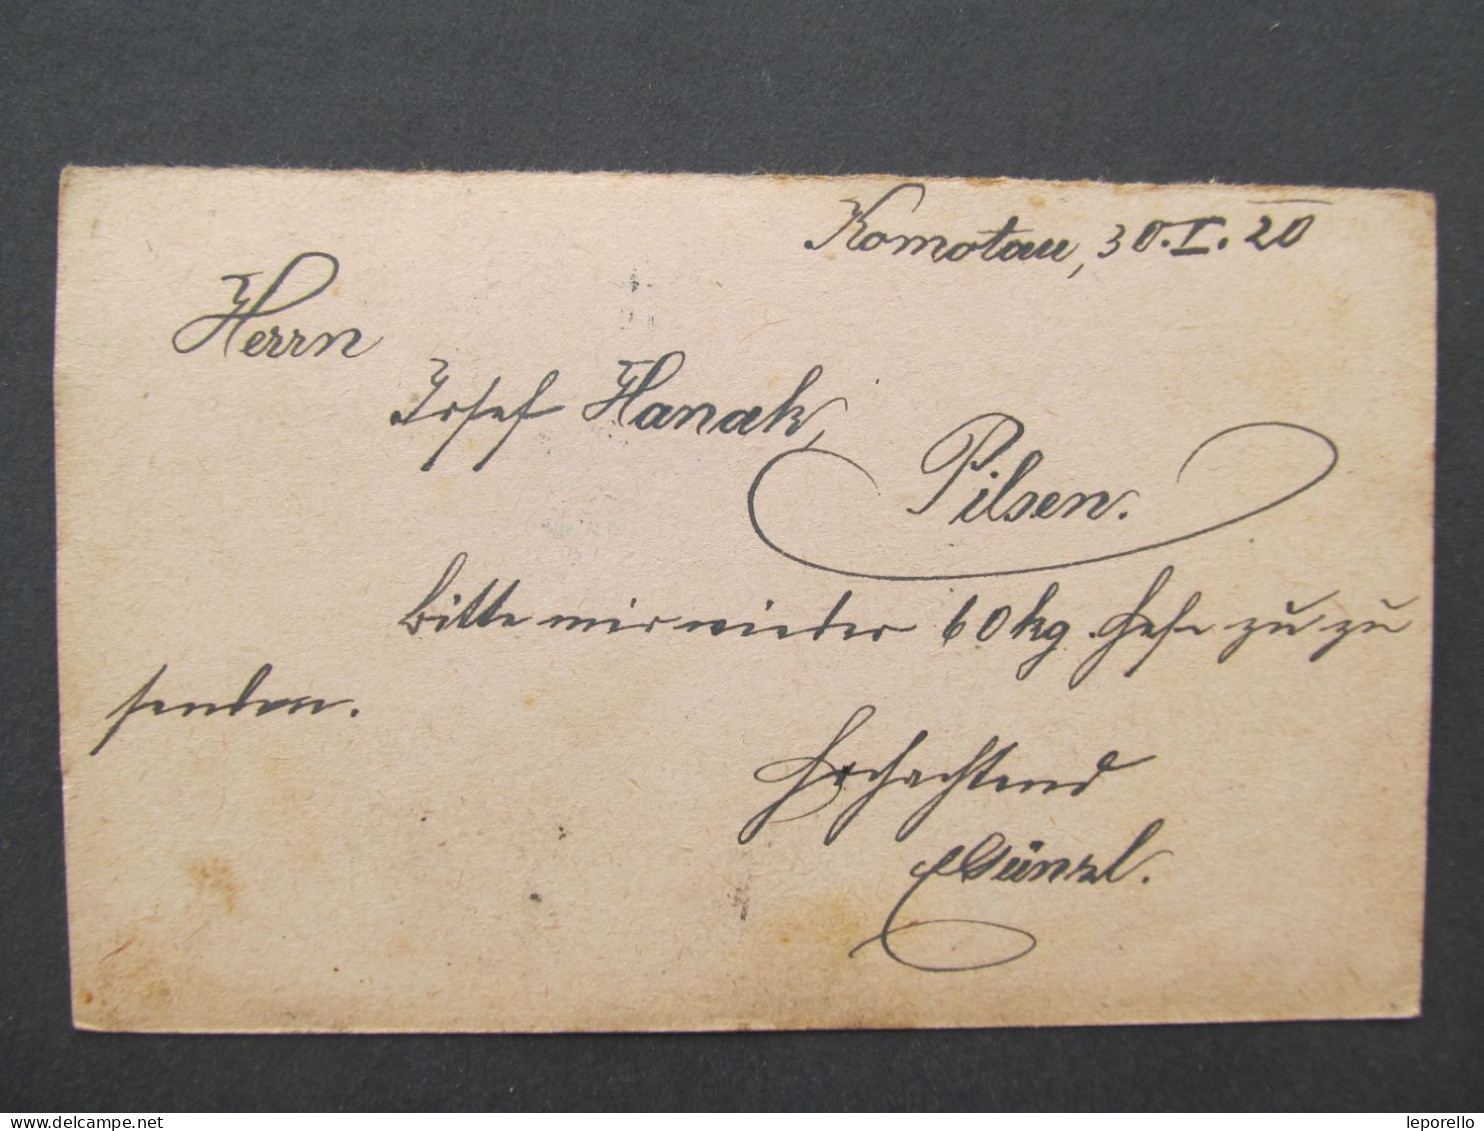 Komotau, 30.I.20
Herrn
Josef Hanak,
Pilsen.
Bitte mir wieder 60 kg. Hefe zu zu
senden.
Hochachtend
Günzl.
leporello